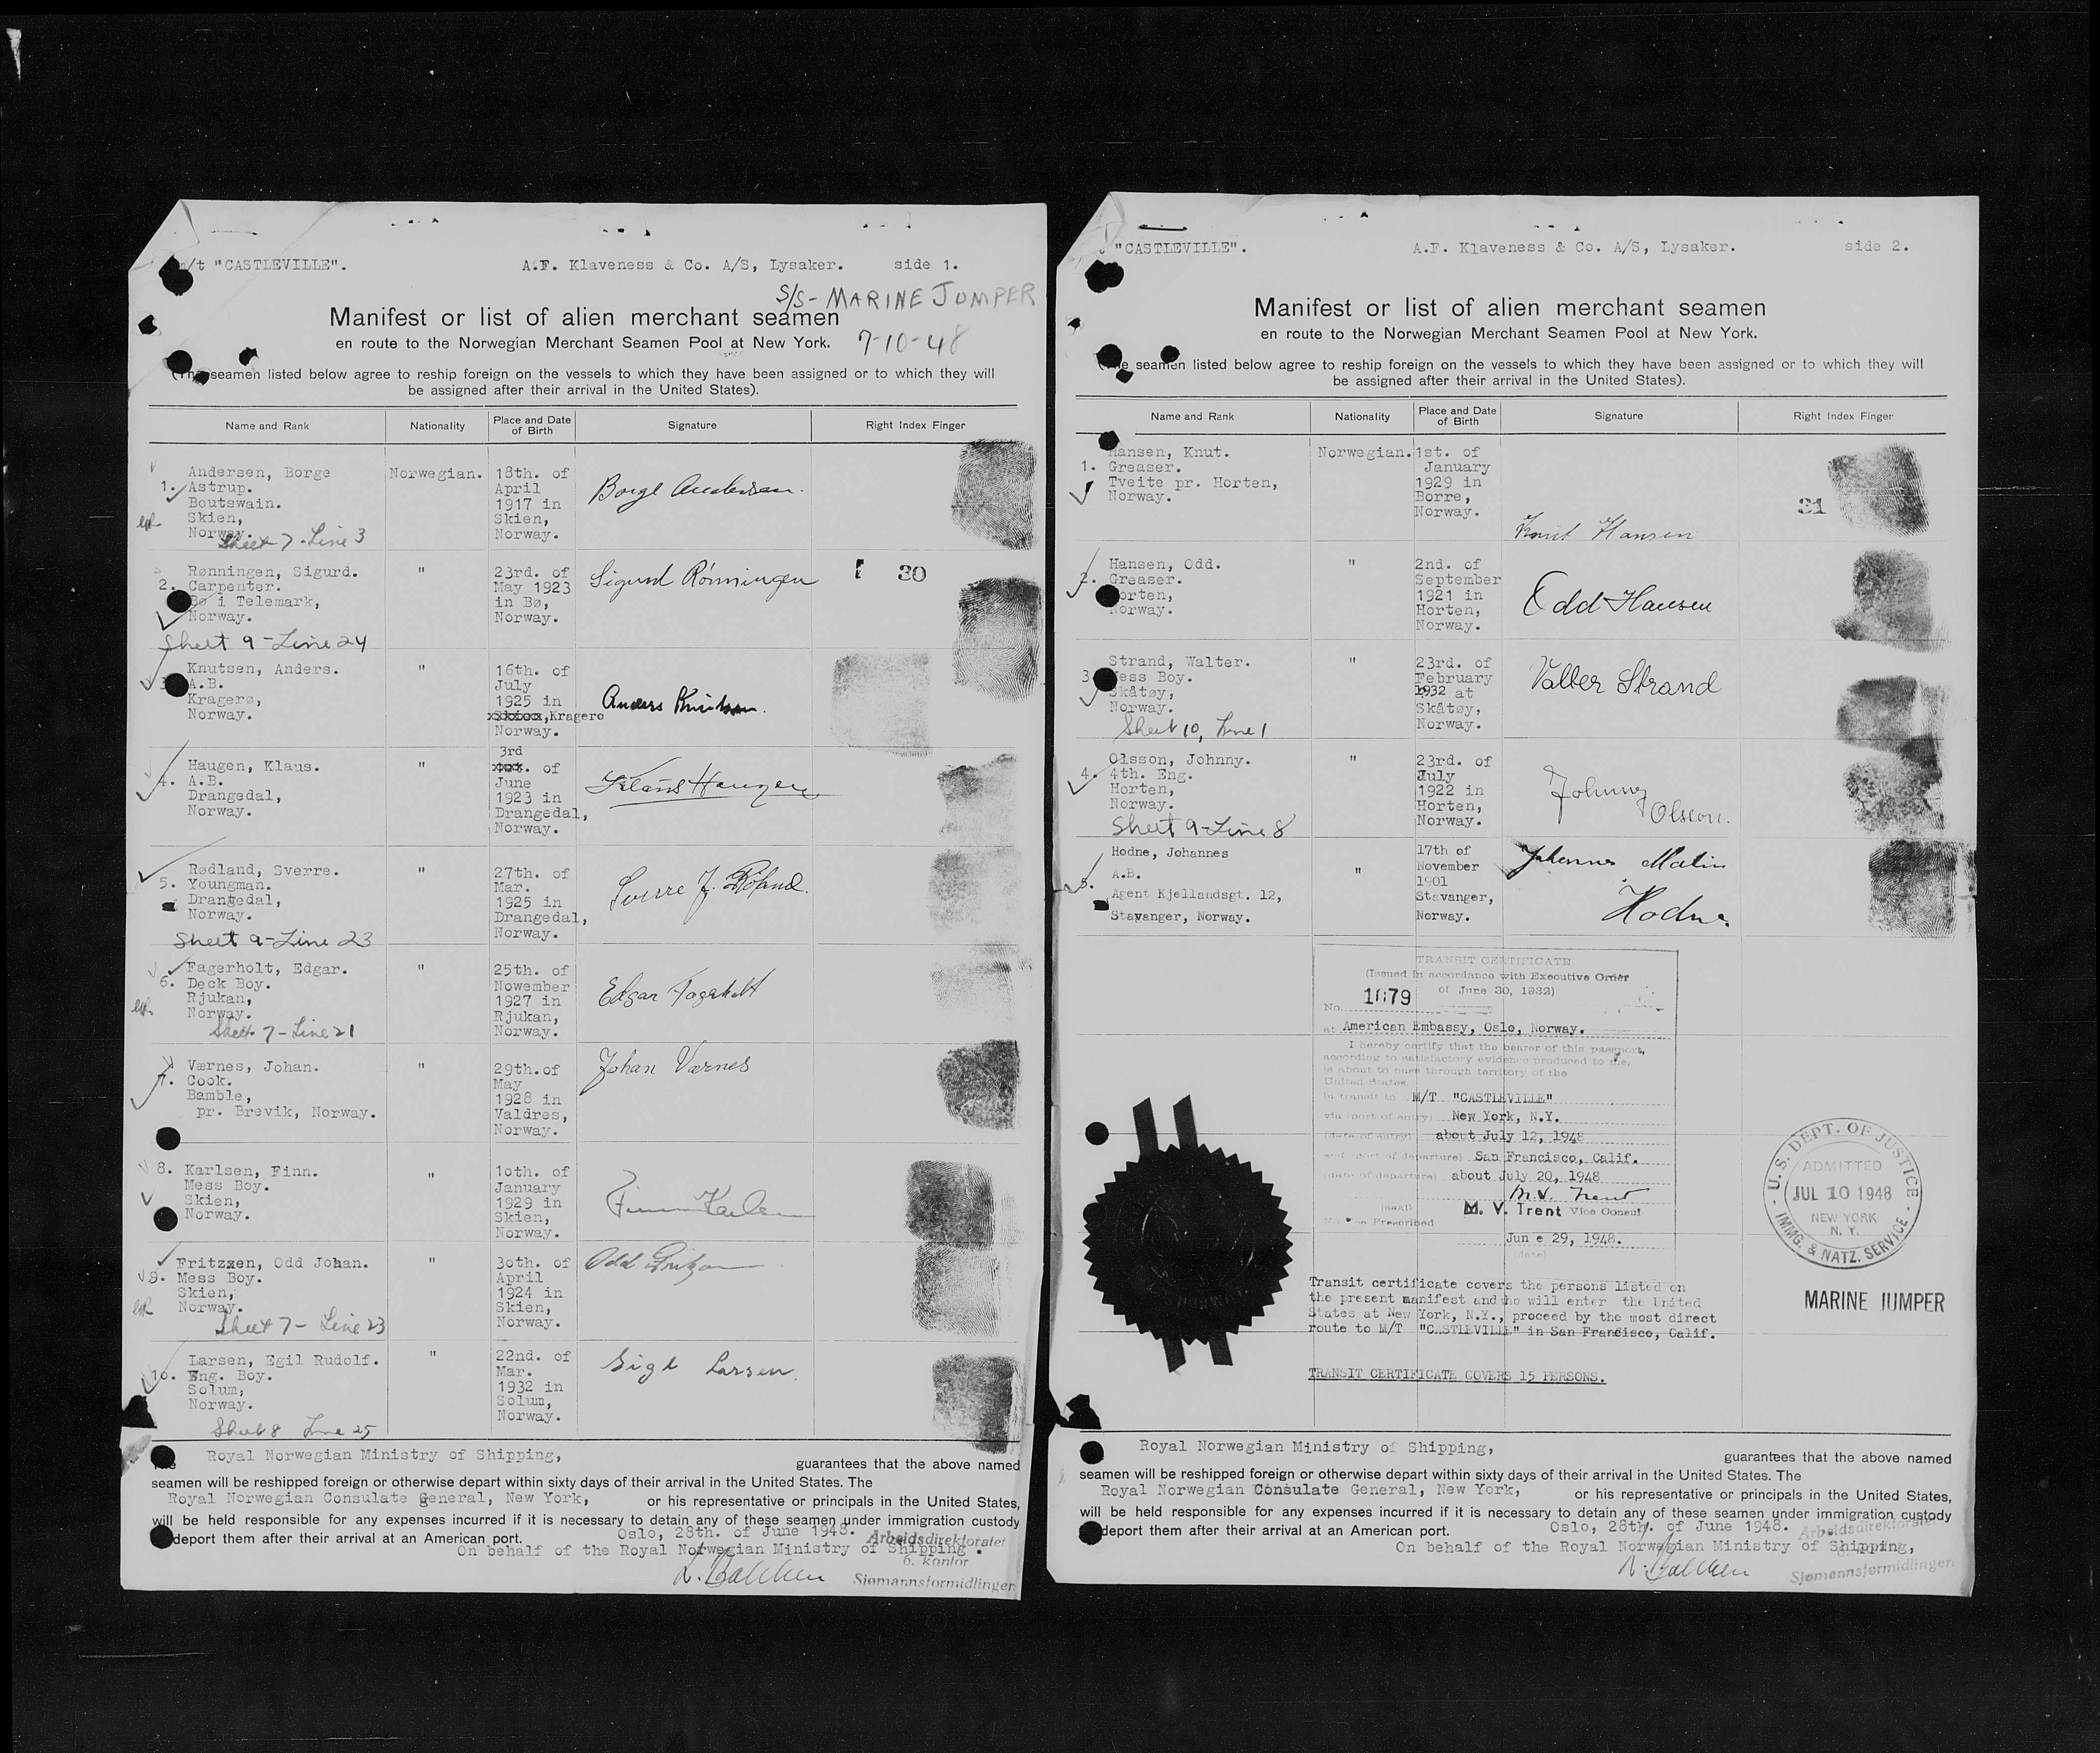 m/t "CASTLEVILLE". A.F. Klaveness & Co. A/S, Lysaker. side 1.
S/S - MARINE JUMPER
Manifest or list of alien merchant seamen
en route to the Norwegian Merchant Seamen Pool at New York. 7-10-48
(The seamen listed below agree to reship foreign on the vessels to which they have been assigned or to which they will
be assigned after their arrival in the United States).
Name and Rank Nationality Place and Date of Birth Signature Right Index Finger
1. Andersen, Borge
Astrup.
Boutswain.
Skien,
Norway.
Norwegian.
18th. of
April
1917 in
Skien,
Norway.
Borge Andersen.
Sheet 7 - Line 3
2. Rønningen, Sigurd.
Carpenter.
Bø i Telemark,
Norway.
"
23rd. of
May 1923
in Bø,
Norway.
Sigurd Rönningen
30
Sheet 9 - Line 24
3. Knutsen, Anders.
A.B.
Kragerø,
Norway.
"
16th. of
July
1925 in
Kragero
Norway.
Anders Knutsen.
4. Haugen, Klaus.
A.B.
Drangedal,
Norway.
"
3rd
of
June
1923 in
Drangedal,
Norway.
Klaus Haugen
5. Rødland, Sverre.
Youngman.
Drangedal,
Norway.
"
27th. of
Mar.
1925 in
Drangedal,
Norway.
Sverre J.
Sheet 9 - Line 23
6. Fagerholt, Edgar.
Deck Boy.
Rjukan,
Norway.
"
25th. of
November
1927 in
Rjukan,
Norway.
Edgar Fagerholt
Sheet 7 - Line 21
7. Værnes, Johan.
Cook.
Bamble,
pr. Brevik, Norway.
"
29th.of
May
1928 in
Valdres,
Norway.
Johan Værnes
8. Karlsen, Finn.
Mess Boy.
Skien,
Norway.
"
1oth. of
January
1929 in
Skien,
Norway.
Finn Karlsen
9. Fritzxen, Odd Johan.
Mess Boy.
Skien,
Norway.
"
3oth. of
April
1924 in
Skien,
Norway.
Odd Fritzen
Sheet 7 - Line 23
10. Larsen, Egil Rudolf.
Eng. Boy.
Solum,
Norway.
"
22nd. of
Mar.
1932 in
Solum,
Norway.
Eigl Larsen.
Sheet 8 Line 25
The Royal Norwegian Ministry of Shipping, guarantees that the above named
seamen will be reshipped foreign or otherwise depart within sixty days of their arrival in the United States. The
Royal Norwegian Consulate General, New York, or his representative or principals in the United States,
will be held responsible for any expenses incurred if it is necessary to detain any of these seamen under immigration custody
deport them after their arrival at an American port. Oslo, 28th. of June 1948. Arbeidsdirektoratet
On behalf of the Royal Norwegian Ministry of Shipping.
6. kontor
Sjømannsformidlingen
"CASTLEVILLE". A.F. Klaveness & Co. A/S, Lysaker. side 2.
Manifest or list of alien merchant seamen
en route to the Norwegian Merchant Seamen Pool at New York.
(The seamen listed below agree to reship foreign on the vessels to which they have been assigned or to which they will
be assigned after their arrival in the United States).
Name and Rank Nationality Place and Date of Birth Signature Right Index Finger
1. Hansen, Knut.
Greaser.
Tveite pr. Horten,
Norway.
Norwegian.
1st. of
January
1929 in
Borre,
Norway.
Knut Hansen
31
2. Hansen, Odd.
Greaser.
Horten,
Norway.
"
2nd. of
September
1921 in
Horten,
Norway.
Odd Hansen
3. Strand, Walter.
Mess Boy.
Skåtøy,
Norway.
"
23rd. of
February
1932 at
Skåtøy,
Norway.
Valter Strand
Sheet 10, Line 1
4. Olsson, Johnny.
4th. Eng.
Horten,
Norway.
"
23rd. of
July
1922 in
Horten,
Norway.
Johnny
Olsson.
Sheet 9 - Line 8
5. Hodne, Johannes
A.B.
Agent Kjellandsgt. 12,
Stavanger, Norway.
"
17th of
November
1901
Stavanger,
Norway.
Johannes Matin
Hodne.
TRANSIT CERTIFICATE
(Issued in accordance with Executive Order
of June 30, 1932)
No. 1079
at American Embassy, Oslo, Norway.
I hereby certify that the bearer of this passport,
according to satisfactory evidence produced to me,
is about to pass through territory of the
United States.
In transit to M/T "CASTLEVILLE"
via (port of entry) New York, N.Y.
(date of entry) about July 12, 1948
and (port of departure) San Francisco, Calif.
(date of departure) about July 20, 1948
M.V. Trent
(seal) M. V. Trent Vice Consul
No Fee Prescribed
June 29, 1948.
(date)
Transit certificate covers the persons listed on
the present manifest and who will enter the United
States at New York, N.Y., proceed by the most direct
route to M/T "CASTLEVILLE" in San Francisco, Calif.
TRANSIT CERTIFICATE COVERS 15 PERSONS.
U.S. DEPT. OF JUSTICE
ADMITTED
JUL 10 1948
NEW YORK
N. Y.
IMMG. & NATZ. SERVICE
MARINE JUMPER
Royal Norwegian Ministry of Shipping, guarantees that the above named
seamen will be reshipped foreign or otherwise depart within sixty days of their arrival in the United States. The
Royal Norwegian Consulate General, New York, or his representative or principals in the United States,
will be held responsible for any expenses incurred if it is necessary to detain any of these seamen under immigration custody
deport them after their arrival at an American port. Oslo, 28th. of June 1948. Arbeidsdirektoratet
On behalf of the Royal Norwegian Ministry of Shipping,
Sjømannsformidlingen